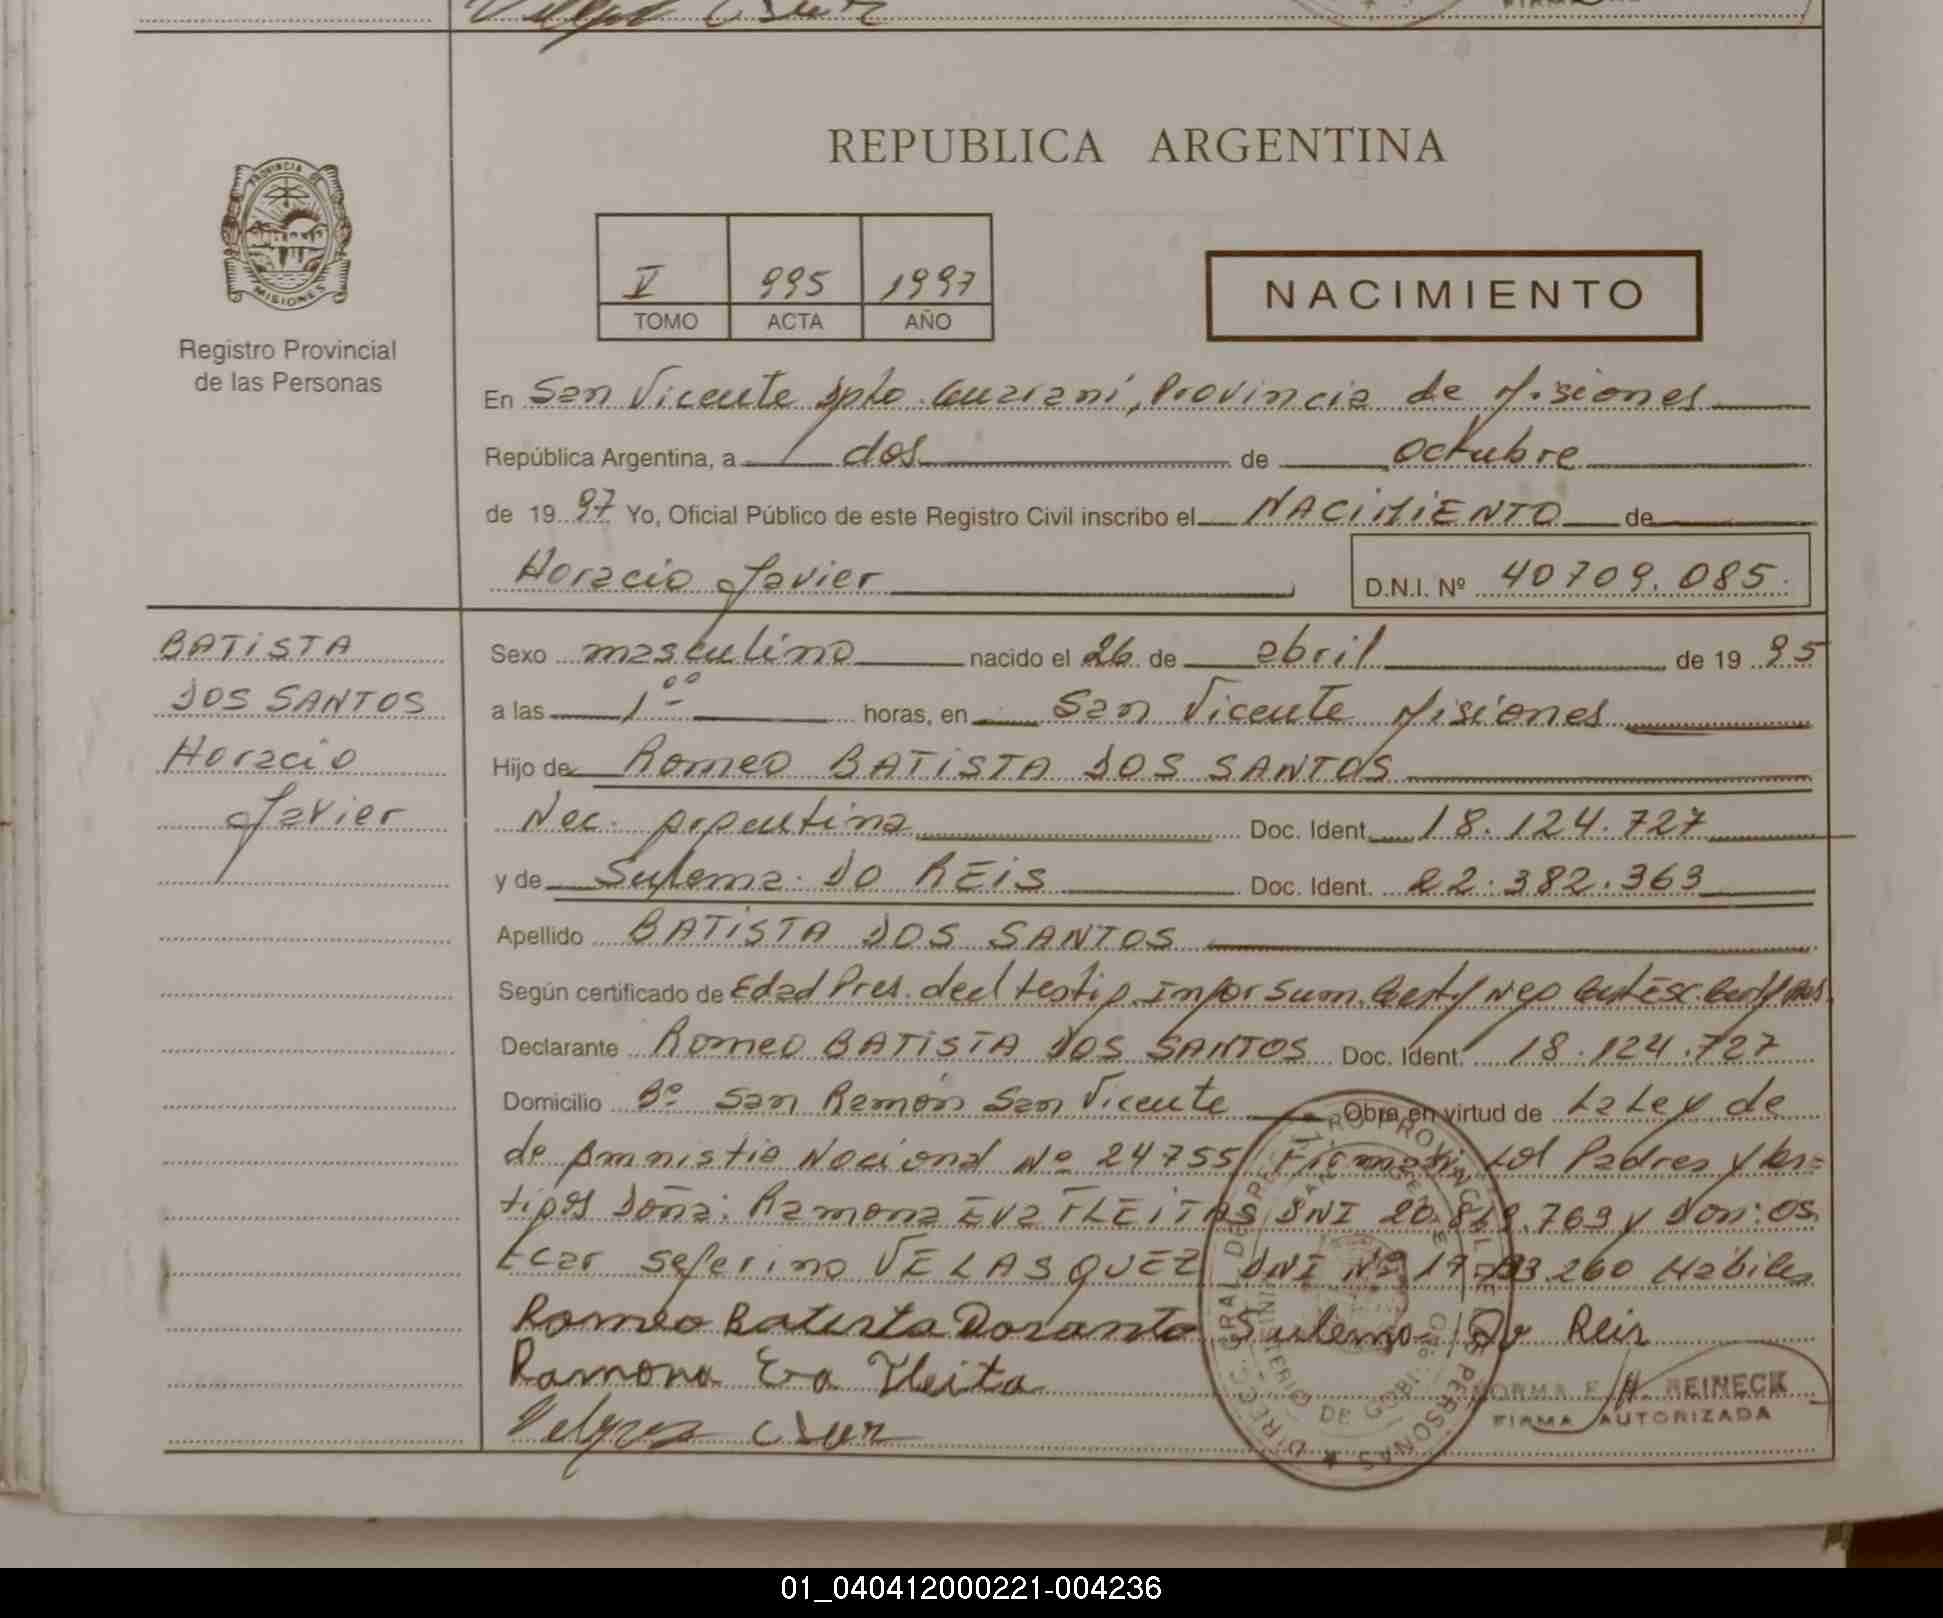 PROVINCIA DE
MISIONES
Registro Provincial
de las Personas
REPUBLICA ARGENTINA
V 995 1997
TOMO ACTA AÑO
NACIMIENTO
En San Vicente Dpto. Guarani, Provincia de Misiones
República Argentina, a dos de octubre
de 1997 Yo, Oficial Público de este Registro Civil inscribo el NACIMIENTO de
Horacio Javier D.N.I. Nº 40709.085.
BATISTA
DOS SANTOS
Horacio
Javier
Sexo masculino nacido el 26 de abril de 1995
a las 1ºº horas, en San Vicente Misiones
Hijo de Romeo BATISTA DOS SANTOS
Nac. argentina Doc. Ident. 18.124.727
y de Sulema DO REIS Doc. Ident. 22.382.363
Apellido BATISTA DOS SANTOS
Según certificado de Edad Pres. decl testig. Infor Sum. Neg
Declarante Romeo BATISTA DOS SANTOS Doc. Ident. 18.124.727
Domicilio Bº San Ramón San Vicente Obra en virtud de La Ley de
de Amnistia Nacional Nº 24755 Firman Los Padres y tes=
tigos Doña: Ramona Eva FLEITAS DNI 769 y Don: Os
car Seferino VELASQUEZ DNI Nº 260 Habiles
Romeo Batista Dosanto Sulema Do Reis
Ramona Eva Fleita
NORMA E. H. REINECK
FIRMA AUTORIZADA
01_040412000221-004236